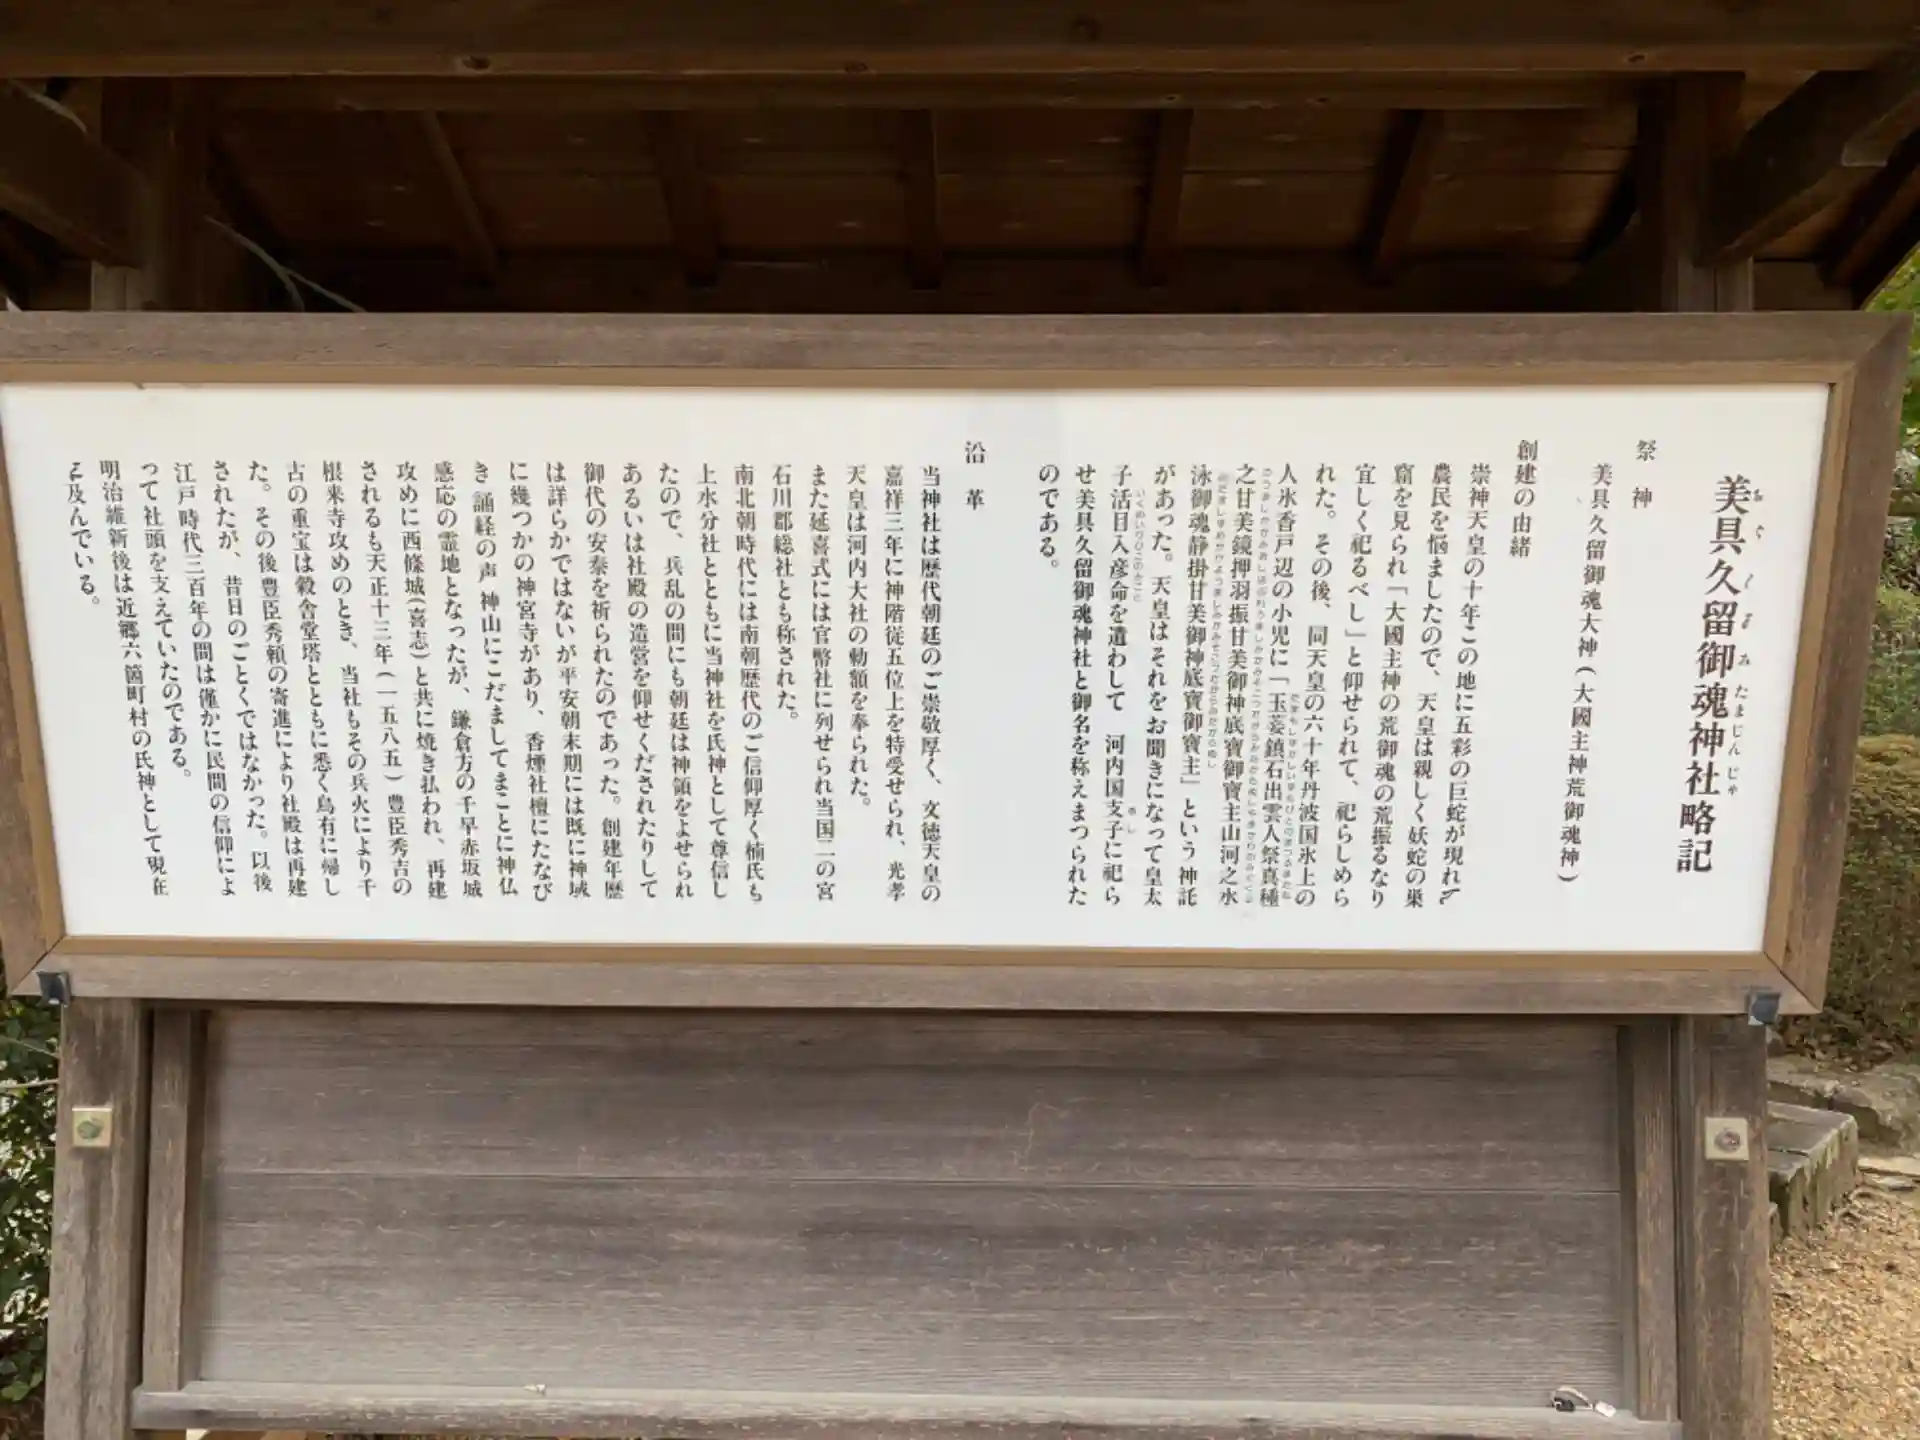 美具久留御魂神社略記
祭神
美具久留御魂大神(大國主神荒御魂神)
創建の由緒
崇神天皇の十年この地に五彩の巨蛇が現れ
農民を悩ましたので、天皇は親しく妖蛇の巣
窟を見られ「大國主神の荒御魂の荒振るなり
宜しく祀るべし」と仰せられて、祀らしめら
れた。その後、同天皇の六十年丹波国氷上の
人氷香戸辺の小児に「玉萎鎮石出雲人祭真種
之甘美鏡押羽振甘美御神底寶御寶主山河之水
泳御魂静掛甘美御神底寶御寶主」という神託
があった。天皇はそれをお聞きになって皇太
子活目入彦命を遣わして 河内国支子に祀ら
せ美具久留御魂神社と御名を称えまつられた
のである。
沿革
当神社は歴代朝廷のご崇敬厚く、文徳天皇の
嘉祥三年に神階従五位上を特受せられ、光孝
天皇は河内大社の勅額を奉られた。
また延喜式には官幣社に列せられ当国二の宮
石川郡総社とも称された。
南北朝時代には南朝歴代のご信仰厚く楠氏も
上水分社とともに当神社を氏神として尊信し
たので、兵乱の間にも朝廷は神領をよせられ
あるいは社殿の造営を仰せくだされたりして
御代の安泰を祈られたのであった。創建年歴
は詳らかではないが平安朝末期には既に神域
に幾つかの神宮寺があり、香煙社檀にたなび
き 誦経の声 神山にこだましてまことに神仏
感応の霊地となったが、鎌倉方の千早赤坂城
攻めに西條城(喜志)と共に焼き払われ、再建
されるも天正十三年(一五八五)豊臣秀吉の
根来寺攻めのとき、当社もその兵火により千
古の重宝は穀舎堂塔とともに悉く烏有に帰し
た。その後豊臣秀頼の寄進により社殿は再建
されたが、昔日のごとくではなかった。以後
江戸時代三百年の間は僅かに民間の信仰によ
って社頭を支えていたのである。
明治維新後は近郷六箇町村の氏神として現在
に及んでいる。